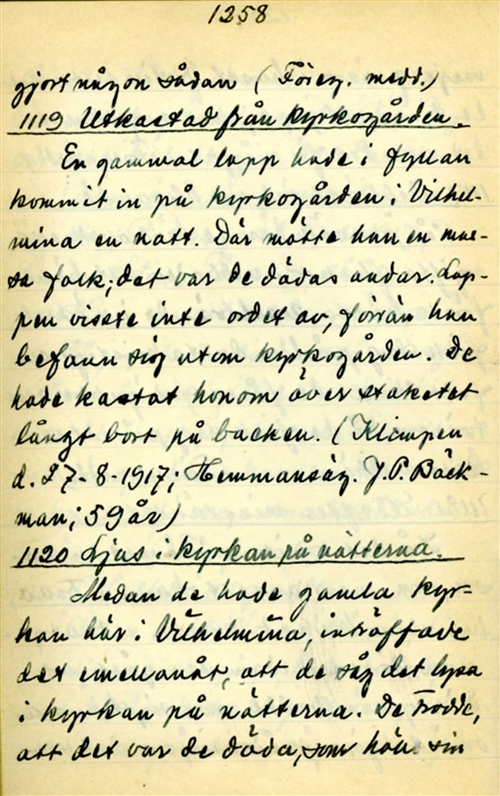 1258
gjort någon sådan (Föreg. medd.)
1119 Utkastad från kyrkogården.
En gammal lapp hade i fyllan
kommit in på kyrkogården i Vilhel-
mina en natt. Där mötte han en mas-
sa folk; det var de dödas andar. Lap-
pen visste inte ordet av, förrän han
befann sig utom kyrkogården. De
hade kastat honom över staketet
långt bort på backen. (Klimpen
d. 27-8-1917; Hemmansäg. J.P. Bäck-
man; 59 år)
1120 Ljus i kyrkan på nätterna.
Medan de hade gamla kyr-
kan här i Vilhelmina, inträffade
det emellanåt, att de såg det lysa
i kyrkan på nätterna. De trodde,
att det var de döda, som höll sin